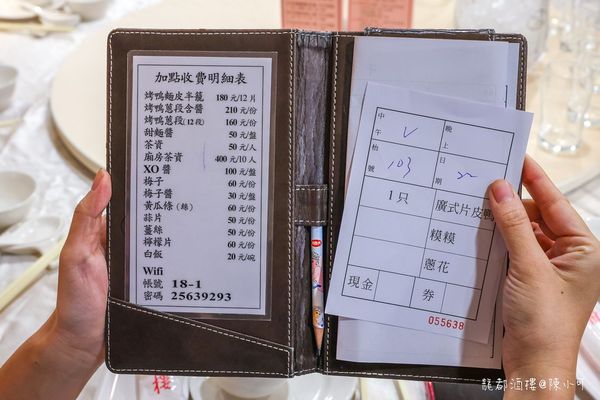 加點收費明細表
烤鴨麵皮半籠 180元/12片
烤鴨蔥段含醬 210元/份
烤鴨蔥段(12段) 160元/份
甜麵醬 50元/盤
茶資 50元/人
廂房茶資 400元/10人
XO醬 100元/盤
梅子 60元/份
梅子醬 30元/盤
黃瓜條(絲) 60元/份
蒜片 50元/份
薑絲 50元/份
檸檬片 60元/份
白飯 20元/碗
Wifi
帳號 18-1
密碼 25639293
中午 V 晚上
枱號 103 日期
1只 廣式片皮鴨
糗糗
蔥花
現金 券
055638
龍都酒樓@陳小可